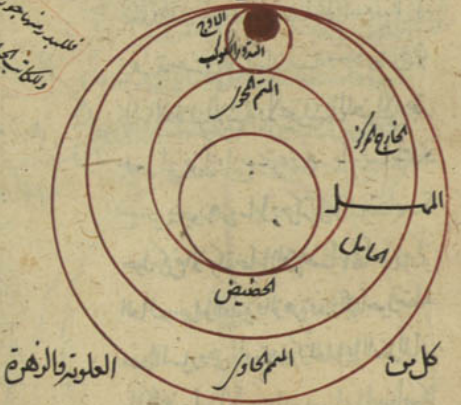 الاوج
التدوير الكوكب
المتمم المحوى
الخارج المركز
الممثل
الحامل
الحضيض
المتمم الحاوى
كل من العلوية والزهرة